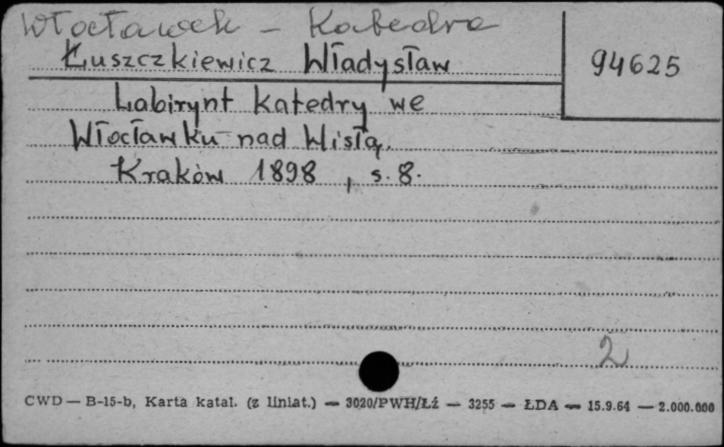 Włocławek - Katedra
Łuszczkiewicz Władysław
94625
Labirynt katedry we
Włocławku nad Wisłą.
Kraków 1898, s. 8.
2
CWD — B-15-b, Karta katal. (z liniat.) — 3020/PWH/Łź — 3255 — ŁDA — 15.9.64 — 2.000.000